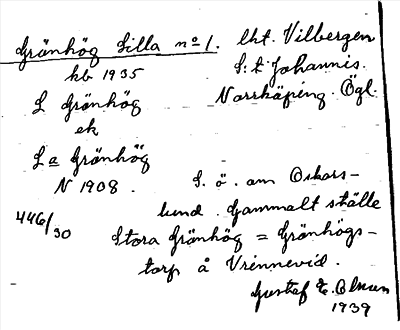 Grönhög Lilla no 1. lht. Vilbergen
kb 1935 S:t Johannis.
L Grönhög Norrköping. Ögl.
ek
La Grönhög
N 1908. S. ö. om Oskars-
lund. Gammalt ställe
446/30 Stora Grönhög = Grönhögs-
torp å Vrinnevid.
Gustaf E. Olson
1939